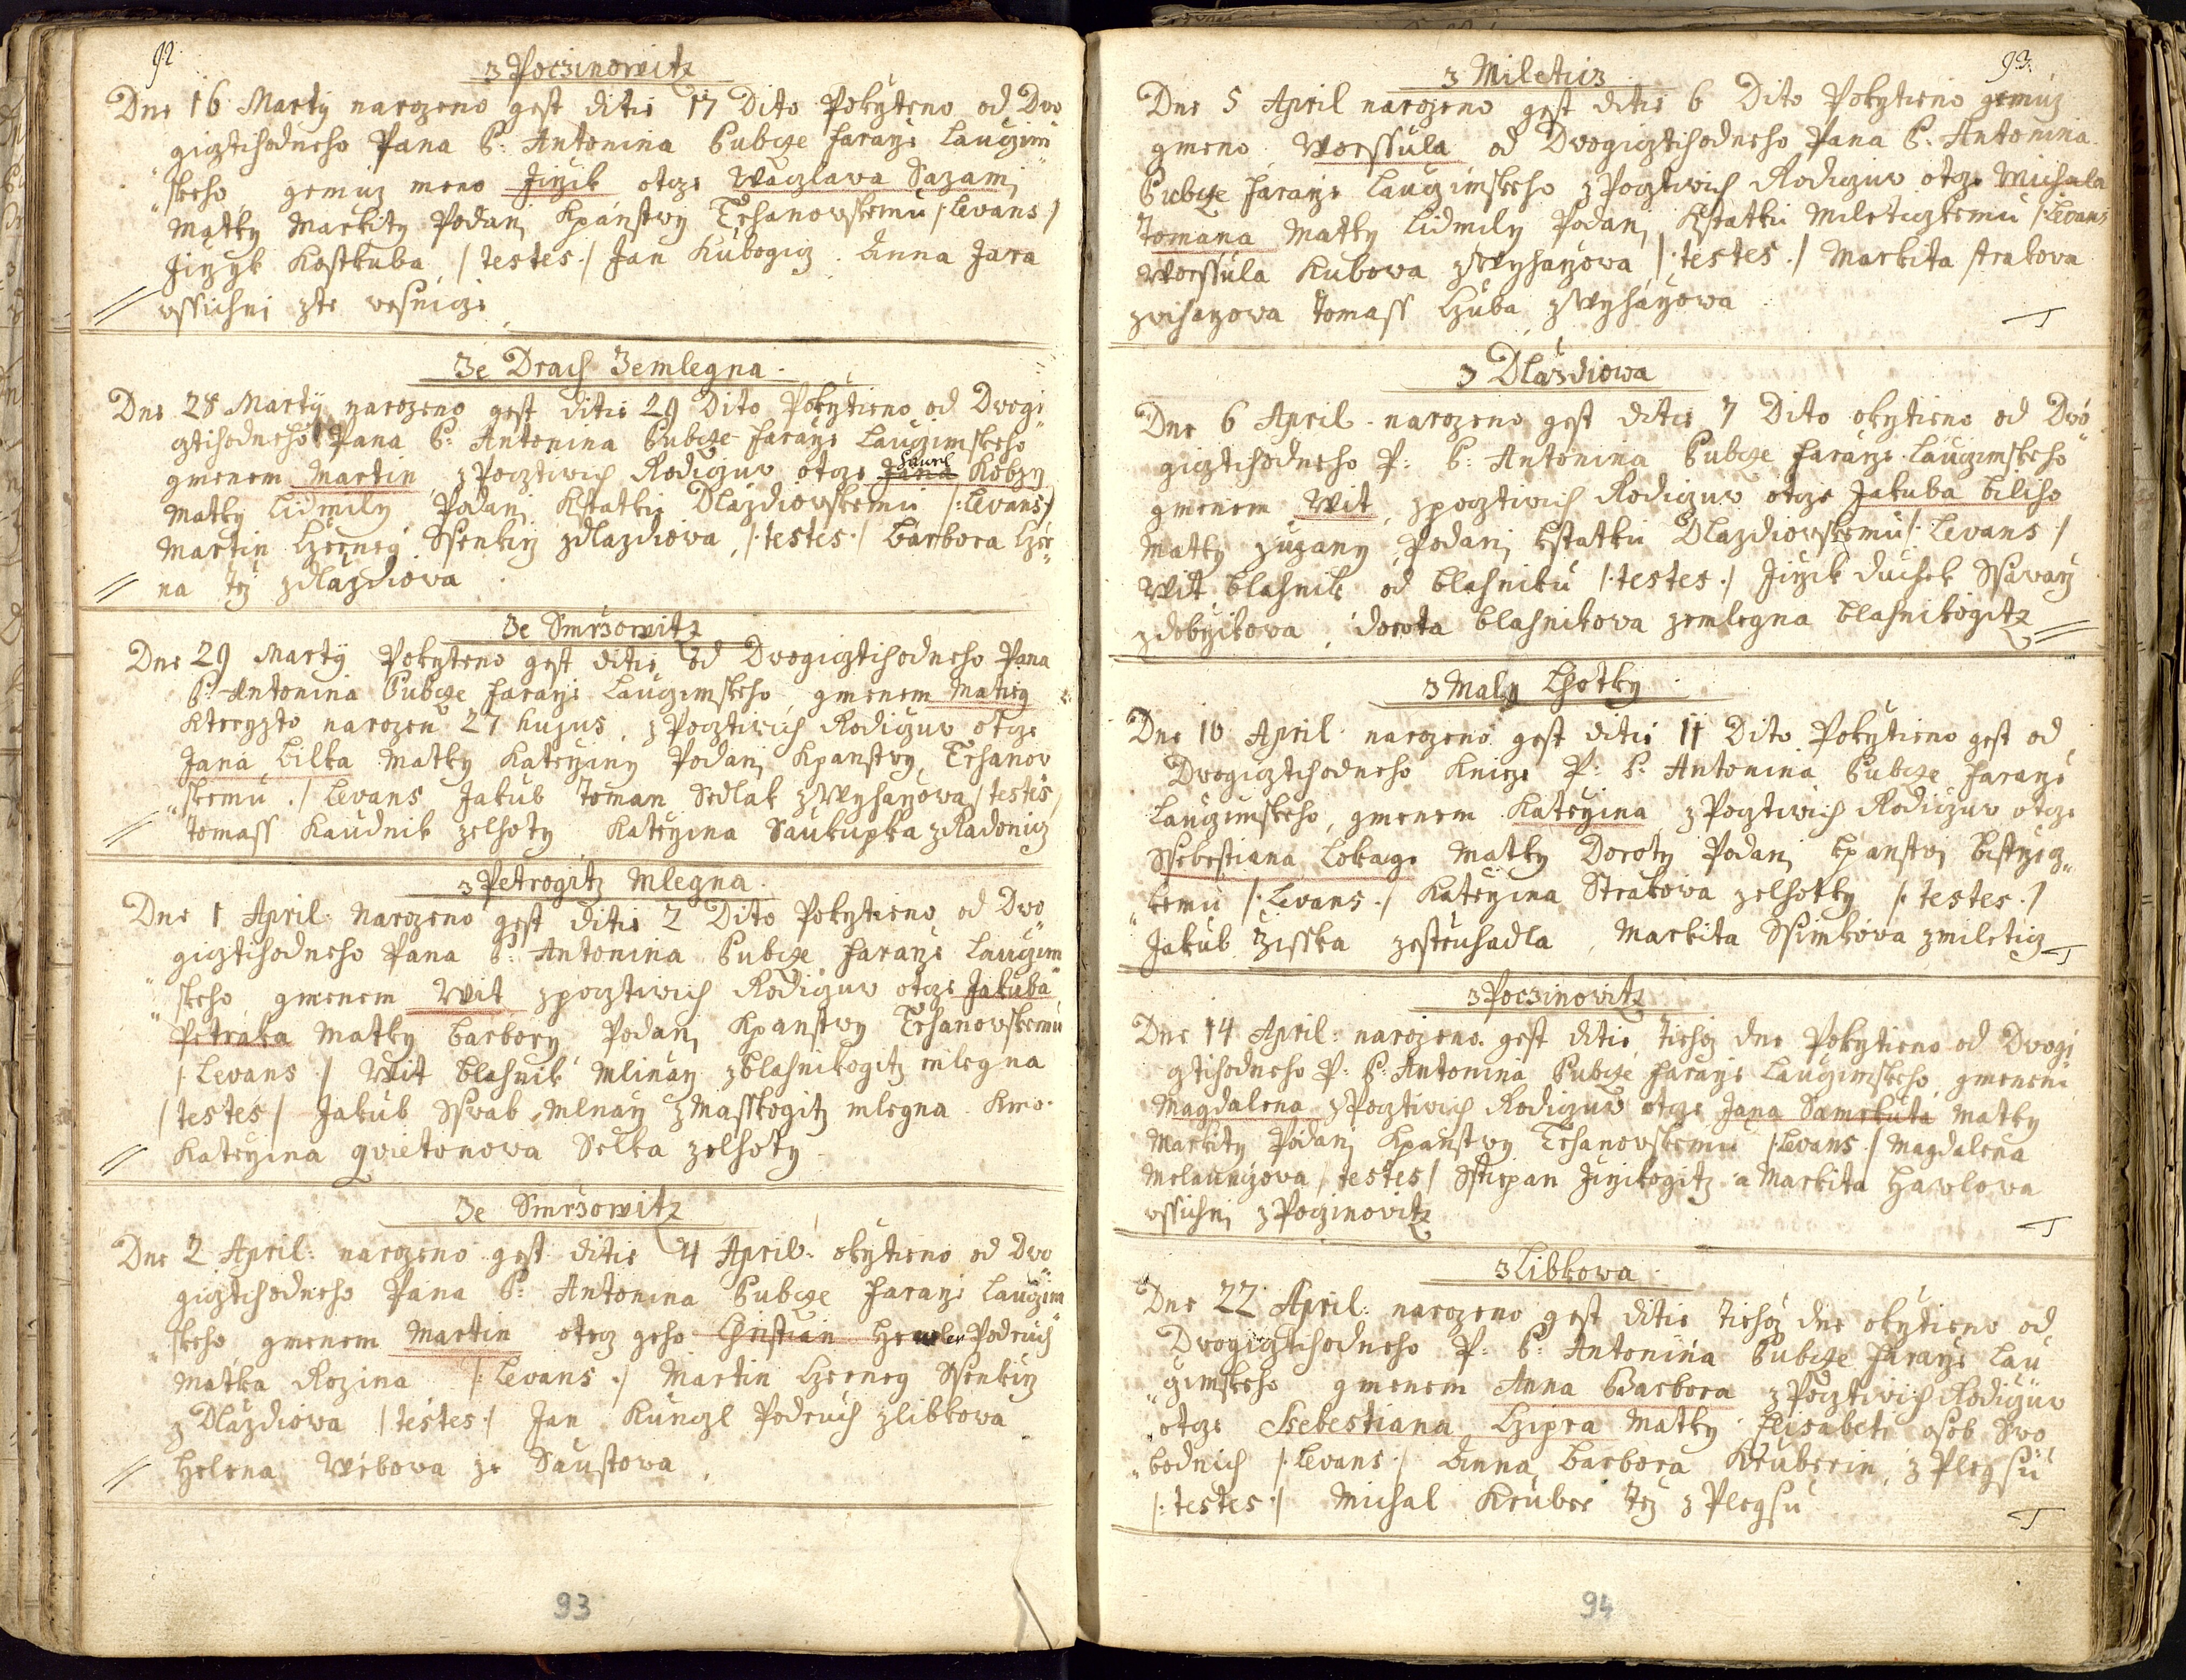 92
z Poczinowitz
Dne 16 Martÿ narozeno gest ditie 17 Dito Pokrzteno od Dvo
gictihodneho Pana P: Antonina Bubcze Faraze Lauczim
skeho, gemuz meno Jirzik otcze Waczlava Sazami
Matky Markity Podani Kpanstwy Trhanovskemu /Levans/
Jirzyk Kostkuba, /testes/ Jan Kubogicz. Anna Jara
vssichni zte vesnicze
Ze Drach Zemlegna
Dne 28 Martÿ narozeno gest ditie 29 Dito Pokrztieno od Dvogi
ctihodneho Pana P: Antonina Bubcze Faraze Lauczimskeho
gmenem Martin, z Pocztivich Rodiczuv otcze Jana Pavel Kobzy
Matky Lidmily Podani Kstatku Dlazdiovskemu /:Levans:/
Martin Czerney Ssenkirz zdlazdiova, /:testes:/ Barbora Czer
na tez zdlazdiova
Ze Smrzowitz
Dne 29 Martÿ Pokrzteno gest ditie od Dvogictihodneho Pana
P: Antonina Bubcze Faraze Lauczimskeho, gmenem Matieg
Kteryzto narozen 27 hujus, z Pocztivich Rodiczuv otcze
Jana Bilka Matky Katerziny Podani Kpanstwy Trhanov
skemu ./ Levans Jakub Toman Sedlak z Wyharzowa /testis/
Tomass Kaudnik zelhoty Katerzina Saukupka z Radonicz
z Petrogitz Mlegna
Dne 1 April: Narozeno gest ditie 2 Dito Pokrztieno od Dvo
gictihodneho Pana P: Antonina Bubcze Faraze Lauczim
skeho gmenem Wit zpocztivich Rodiczuv otcze Jakuba
Petraka Matky Barbory Podani Kpanstwy Trhanovskemu
/Levans/ Wit Blahnik Mlinarz zblahnikogitz mlegna
/testes/ Jakub Sswab Mlnarz z Masskogitz mlegna. Kmo.
Katerzina Qvietonova Selka zelhoty
Ze Smrzowitz
Dne 2 April: narozeno gest ditie 4 April: okrztieno od Dvo
gictihodneho Pana P: Antonina Bubcze Faraze Lauczim
skeho gmenem Martin otecz geho Christian Podruch
Matka Rozina /:Levans:/ Martin Czerney Ssenkirz
z Dlazdiowa /testes/ Jan Kunczl Podruch zlibkowa
Helena Wébowa ze Saustowa
93
93
z Miletiiz
Dne 5 April narozeno gest ditie 6 Dito Pokrztieno gemuz
gmeno Worssula od Dvogictihodneho Pana P: Antonina
Bubcze Faraze Lauczimskeho z Pocztivich Rodiczuv otcze Michala
Tomana Matky Lidmily Podani Kstatku Mileticzkemu /:Levans
Worssula Kubowa z Wyharzowa /:testes./ Markita strakova
zviharzova Tomass Czuba z Wyharzowa
z Dlazdiowa
Dne 6 April. narozeno gest ditie 7 Dito okrztieno od Dvo
gictihodneho P: P: Antonina Bubcze Faraze Lauczimskeho
gmenem Wit, zpocztivich Rodiczuv otcze Jakuba Biliho
Matky zuzany Podani Kstatku Dlazdiovskemu /: Levans /
Wit Blahnik od Blahniku /:testes:/ Jirzik duchek Ssavarz
zdobrzikova, dorota Blahnikova zemlegna blahnikogitz
z Maly Lhotky
Dne 10 April narozeno gest ditie 11 Dito Pokrztieno gest od
Dvogictihodneho Knieze P: P: Antonina Bubcze Faraze
Lauczimskeho, gmenem Katerzina z Pocztivich Rodiczuv otcze
Ssebestiana Lokaze Matky Doroty Podani kpanstvi Bistrzicz
kemu /:Levans./ Katerzina Strakowa zelhotky /:testes./
Jakub Zisska zestruhadla, Markita Ssimkova zmileticz
z Poczinovitz
Dne 14 April: narozeno gest ditie tiehoz dne Pokrztieno od Dvogi
ctihodneho P: P: Antonina Bubcze Faraze Lauczimskeho gmenem
Magdalena z Pocztivich Rodiczuv otcze Jana Samekuta Matky
Markity Podani Kpanstwy Trhanovskemu /:Levans./ Magdalena
Melaunzova /testes/ Sstiepan Jirzikogitz a Markita Havlova
vssichni z Poczinovitz
z Libkowa
Dne 22 April: narozeno gest ditie tiehoz dne okrztieno od
Dvogictihodneho P: P: Antonina Bubcze Faraze Lau
czimskeho gmenem Anna Barbora z Pocztivich Rodiczuv
otcze Ssebestiana Czipra Matky Elisabeti osob Svo
bodnich /:Levans:/ Anna Barbora Kruberin, z Plegsu
/:testes:/ Michal Kruber tez z Plegsu
94